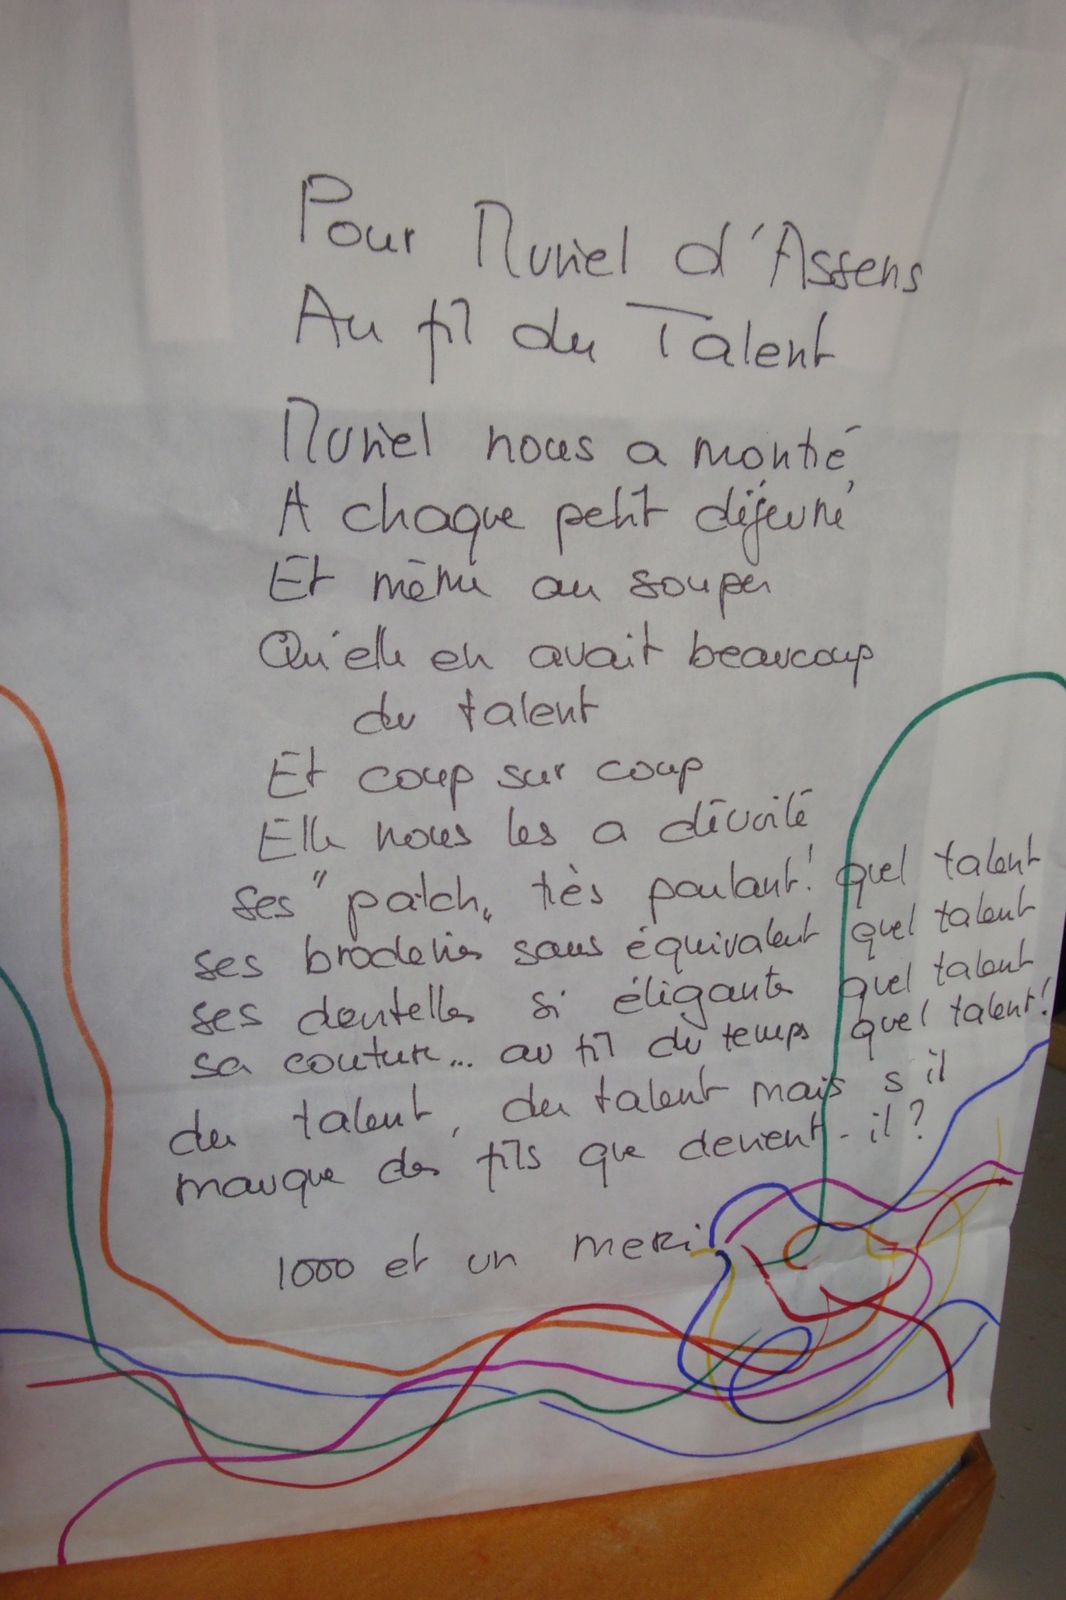 Pour Muriel d'Assens
Au fil du Talent
Muriel nous a montré
A chaque petit déjeuné
Et même au souper
Qu'elle en avait beaucoup
du talent
Et coup sur coup
Elle nous les a dévoilé
ses "patch" très parlant! quel talent
ses broderies sans équivalent quel talent
ses dentelles si élégantes quel talent
sa couture... au fil du temps quel talent!
du talent, du talent mais s il
manque des fils que devient-il?
1000 et un merci